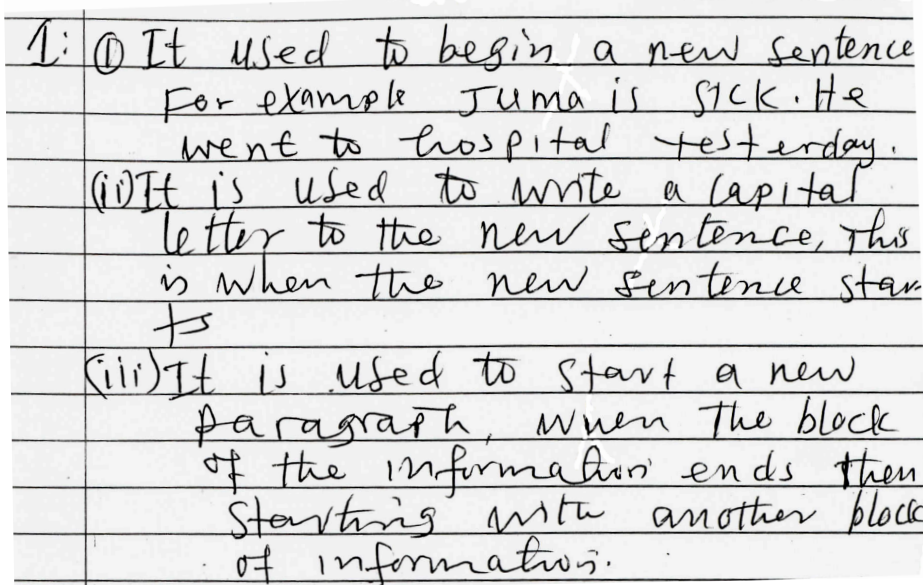 1: (i) It used to begin a new sentence
For example Juma is sick. He
went to hospital yesterday.
(ii) It is used to write a capital
letter to the new sentence, This
is when the new sentence star
ts
(iii) It is used to start a new
paragraph, when The block
of the information ends then
starting with another block
of information.